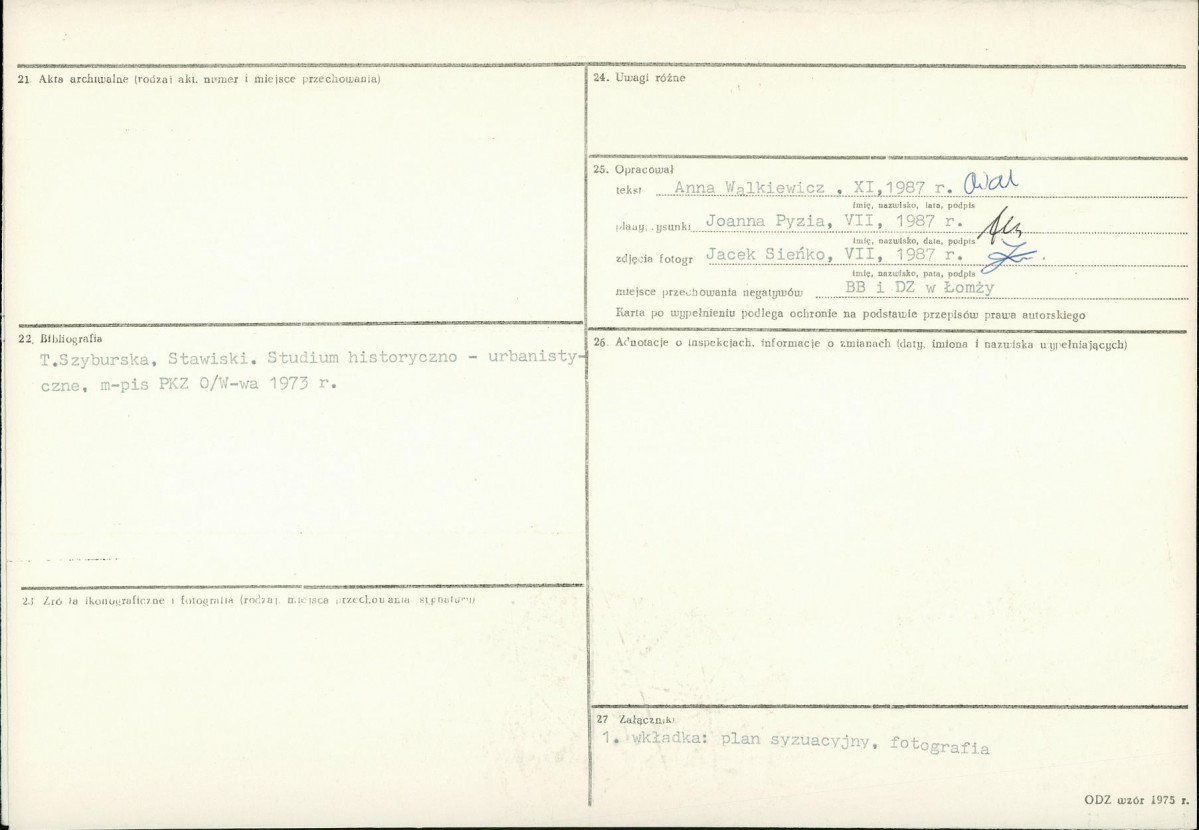 21. Akta archiwalne (rodzaj akt, numer i miejsce przechowania)
22. Bibliografia
T.Szyburska, Stawiski. Studium historyczno - urbanisty-
czne, m-pis PKZ O/W-wa 1973 r.
23 Źródła ikonograficzne i fotografia (rodzaj, miejsca przechowania sygnatury)
24. Uwagi różne
25. Opracował
tekst Anna Wąlkiewicz , XI,1987 r.
imię, nazwisko, data, podpis
plany, rysunki Joanna Pyzia, VII, 1987 r.
imię, nazwisko, data, podpis
zdjęcia fotogr Jacek Sieńko, VII, 1987 r.
imię, nazwisko, data, podpis
miejsce przechowania negatywów BB i DZ w Łomży
Karta po wypełnieniu podlega ochronie na podstawie przepisów prawa autorskiego
26. Adnotacje o inspekcjach, informacje o zmianach (daty, imiona i nazwiska wypełniających)
27 Załączniki
1. wkładka: plan syzuacyjny, fotografia
ODZ wzór 1975 r.